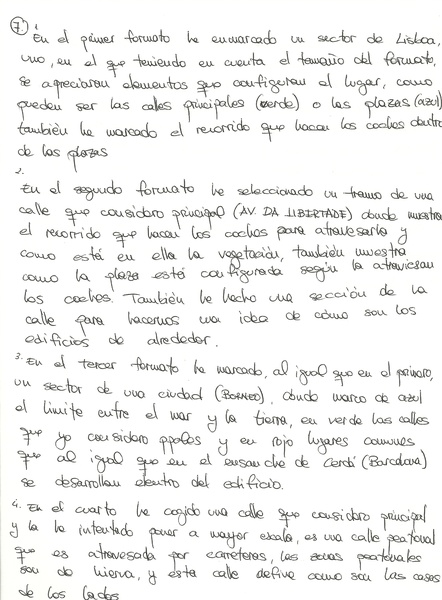 7. En el primer formato he enmarcado un sector de Lisboa,
uno, en el que teniendo en cuenta el tamaño del formato,
se apreciaran elementos que configuran el lugar, como
pueden ser las calles principales (verde) o las plazas (azul)
también he marcado el recorrido que hacen los coches dentro
de las plazas
2.
En el segundo formato he seleccionado un tramo de una
calle que considero principal (AV. DA LIBERTADE) donde muestro
el recorrido que hacen los coches para atravesarla y
como está en ella la vegetación, también muestra
como la plaza está configurada según la atraviesan
los coches. También he hecho una sección de la
calle para hacernos una idea de cómo son los
edificios de alrededor.
3. En el tercer formato he marcado, al igual que en el primero,
un sector de una ciudad (BORNEO). donde marco de azul
el límite entre el mar y la tierra, en verde las calles
que yo considero ppales y en rojo lugares comunes
que al igual que en el ensanche de Cerdá (Barcelona)
se desarrollan dentro del edificio.
4. En el cuarto he cogido una calle que considero principal
y la he intentado poner a mayor escala, es una calle peatonal
que es atravesada por carreteras, las zonas peatonales
son de hierva, y esta calle define como son las casas
de los lados